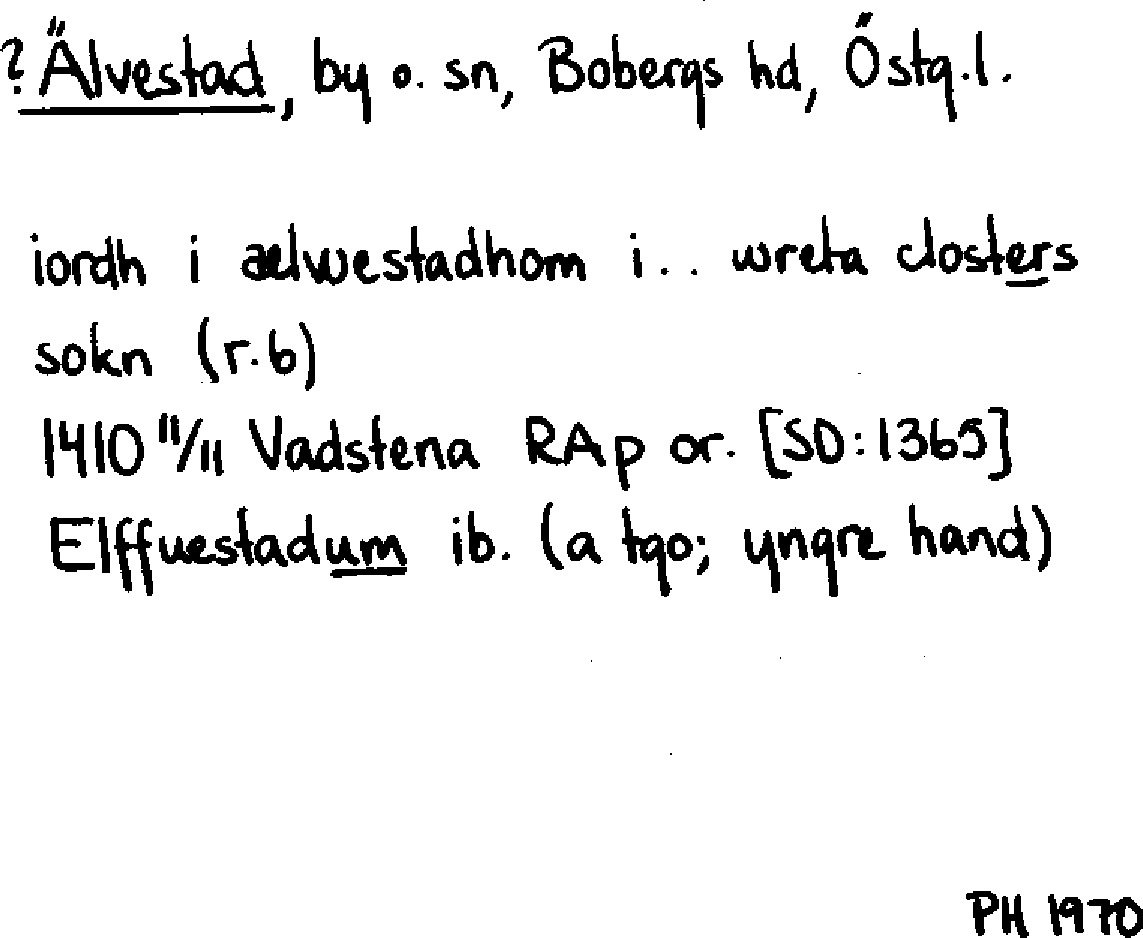 ? Älvestad, by o. sn, Bobergs hd, Östg.l.
iordh i ælwestadhom i.. wreta closters
sokn (r.6)
1410 11/11 Vadstena RAp or. [SD:1365]
Elffuestadum ib. (a tgo; yngre hand)
PH 1970